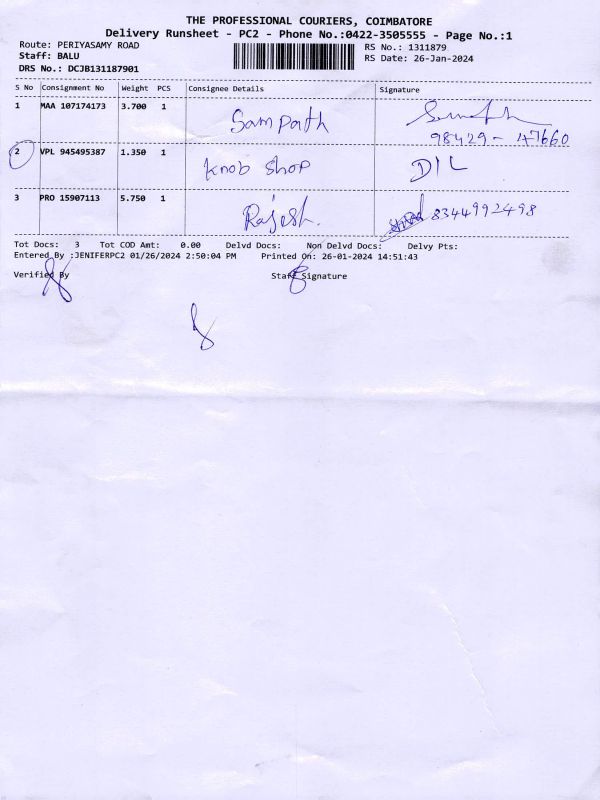 THE PROFESSIONAL COURIERS, COIMBATORE
Delivery Runsheet - PC2 - Phone No.:0422-3505555 - Page No.:1
Route: PERIYASAMY ROAD
RS No.: 1311879
Staff: BALU
RS Date: 26-Jan-2024
DRS No.: DCJB131187901
S No Consignment No Weight PCS Consignee Details Signature
1 MAA 107174173 3.700 1 Sampath
98429-47660
2 VPL 945495387 1.350 1 Knob Shop DIL
3 PRO 15907113 5.750 1 Rajesh. 8344992498
Tot Docs: 3 Tot COD Amt: 0.00 Delvd Docs: Non Delvd Docs: Delvy Pts:
Entered By :JENIFERPC2 01/26/2024 2:50:04 PM Printed On: 26-01-2024 14:51:43
Verified By Staff Signature